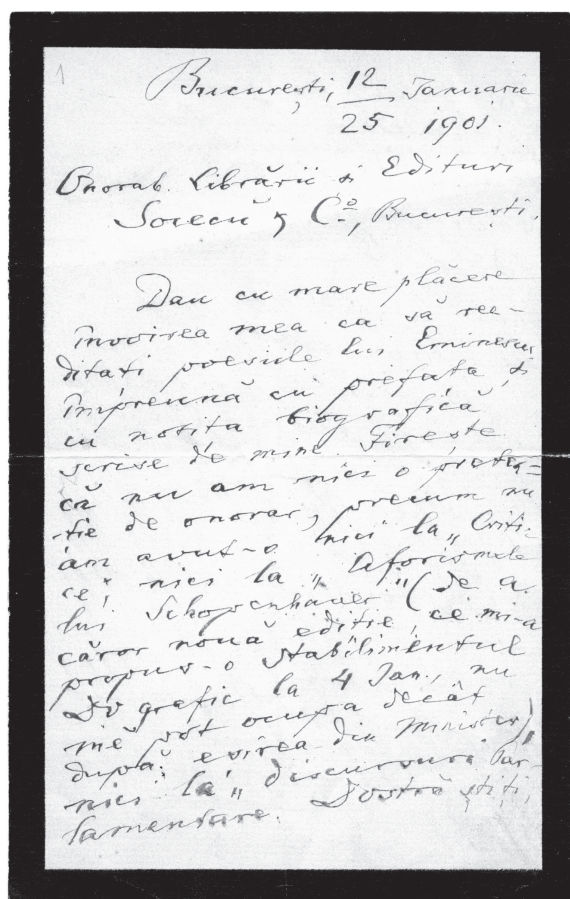 1
București, 12 Ianuarie
25 1901.
Onorab. Librării și Edituri
Socecŭ & Co, București.
Dau cu mare plăcere
învoirea mea ca să ree-
ditați poesiile lui Eminescu
împreună cu prefața și
cu notița biografică
scrise de mine. Firește
că nu am nici o preten-
ție de onorar, precum nu
am avut-o nici la „Criti-
ce", nici la „Aforismele
lui Schopenhauer" (de a
căror nouă ediție, ce mi-a
propus-o Stabilimentul
Dv grafic la 4 Jan., nu
mĕ pot ocupa decât
după esirea din Minister),
nici la „discursuri Par-
lamentare. Dvostră știți,